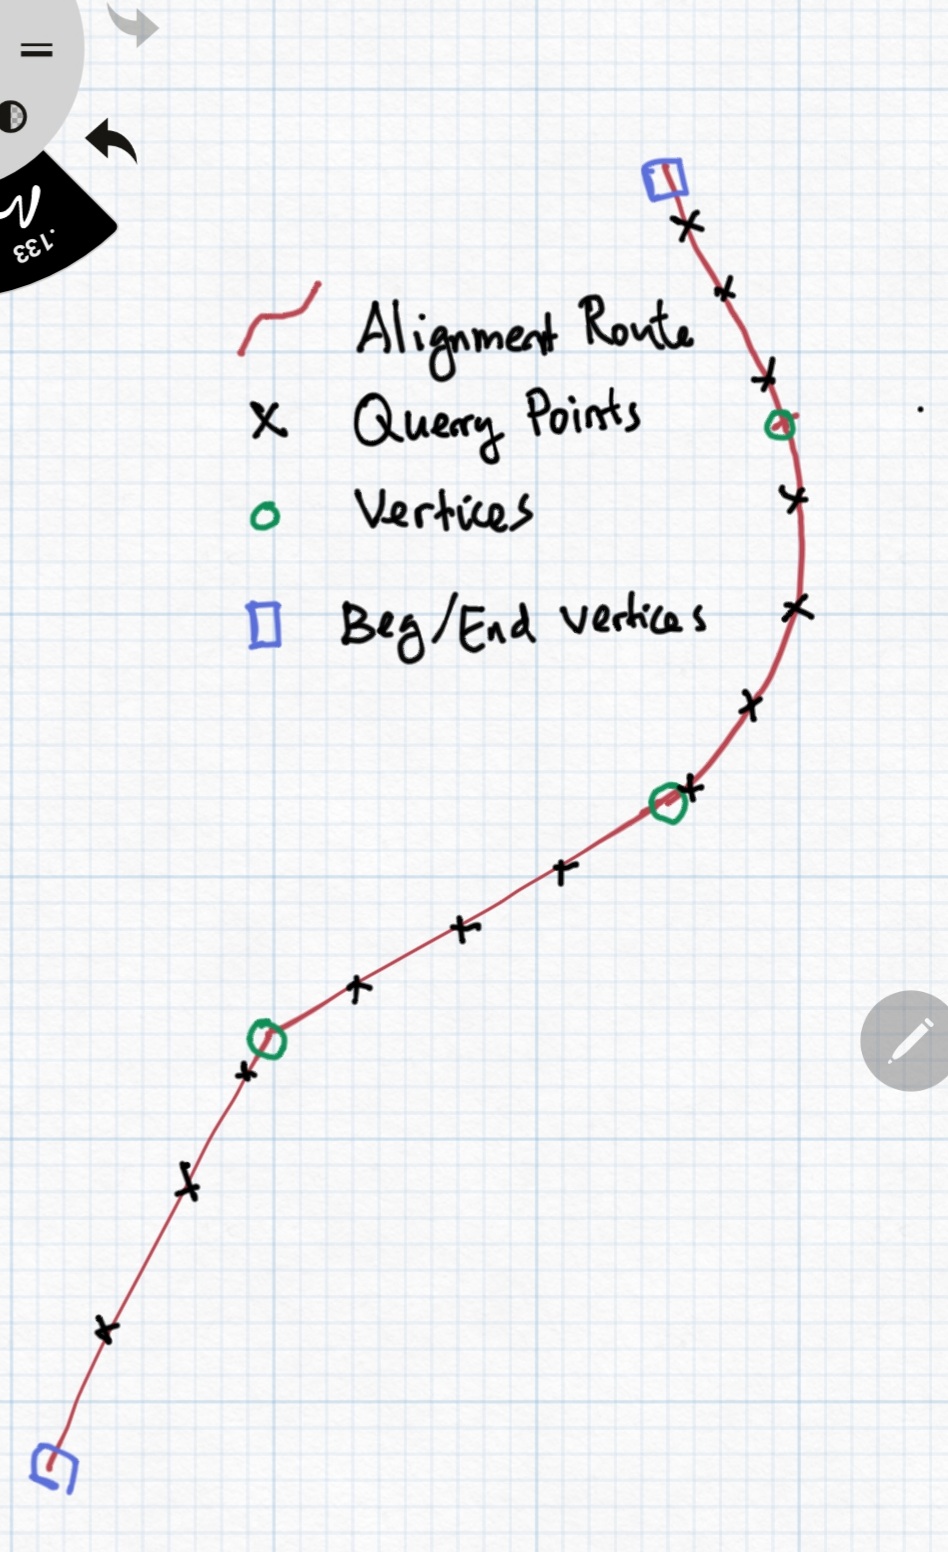 .133
Alignment Route
Query Points
Vertices
Beg/End Vertices